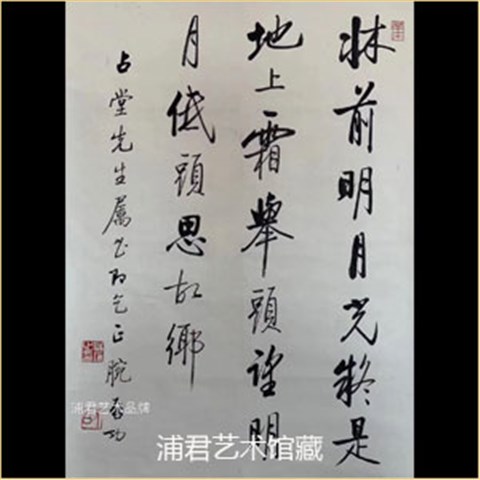 牀前明月光疑是
地上霜舉頭望明
月低頭思故鄉
占堂先生屬書即乞正腕 啟功
浦君艺术品牌
浦君艺术馆藏